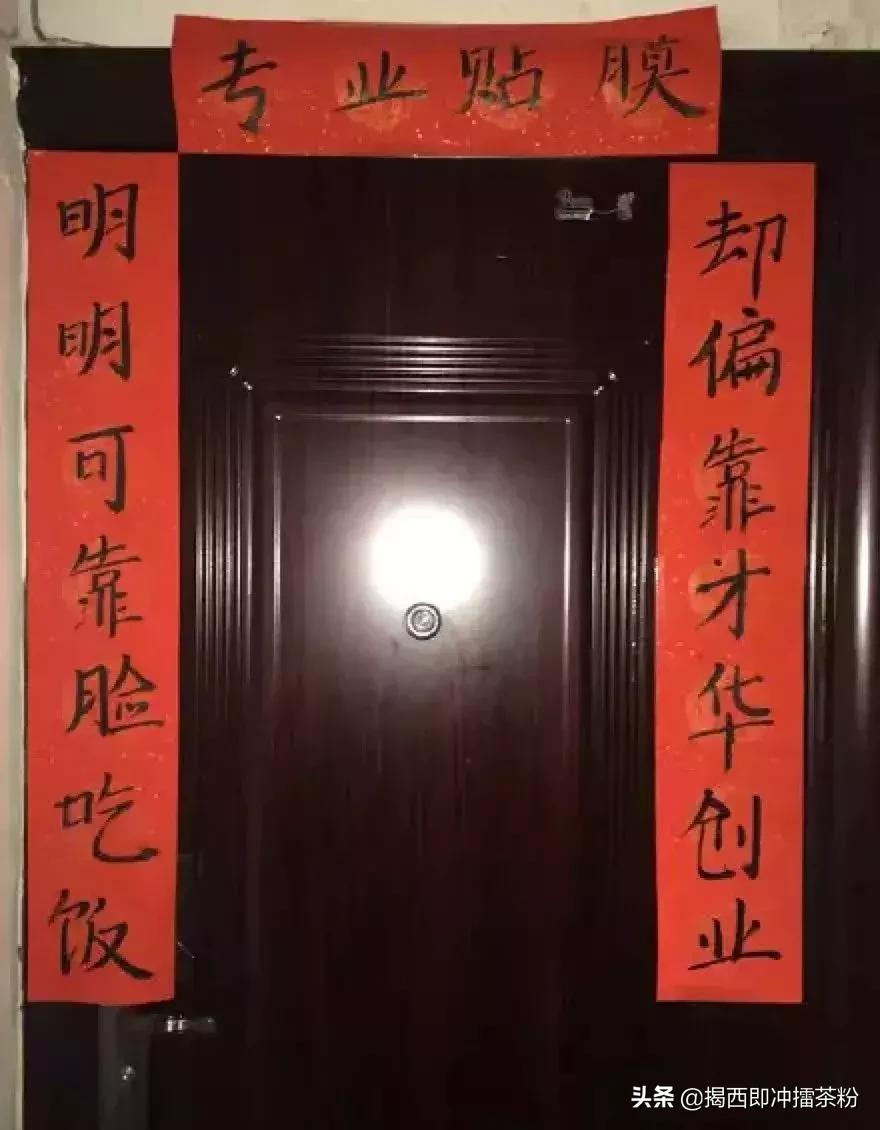 专业贴膜
明明可靠脸吃饭
却偏靠才华创业
头条 @揭西即冲擂茶粉